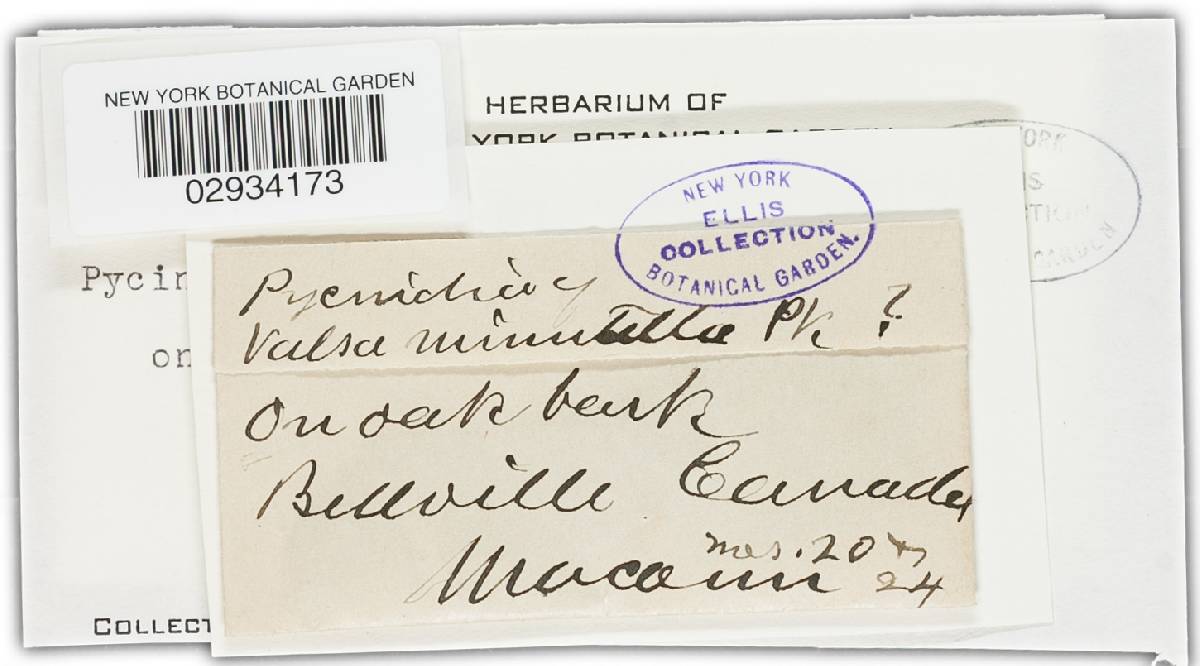 NEW YORK BOTANICAL GARDEN
02934173
HERBARIUM OF
YORK BOTANICAL GARDEN
NEW YORK
ELLIS
COLLECTION
BOTANICAL GARDEN.
ORK
IS
TION
GARDEN
Pycin
on
Pycnidia of
Valsa minutella Pk ?
On oak bark
Bellville Canada
nos. 20 &
Macoun 24
COLLECT